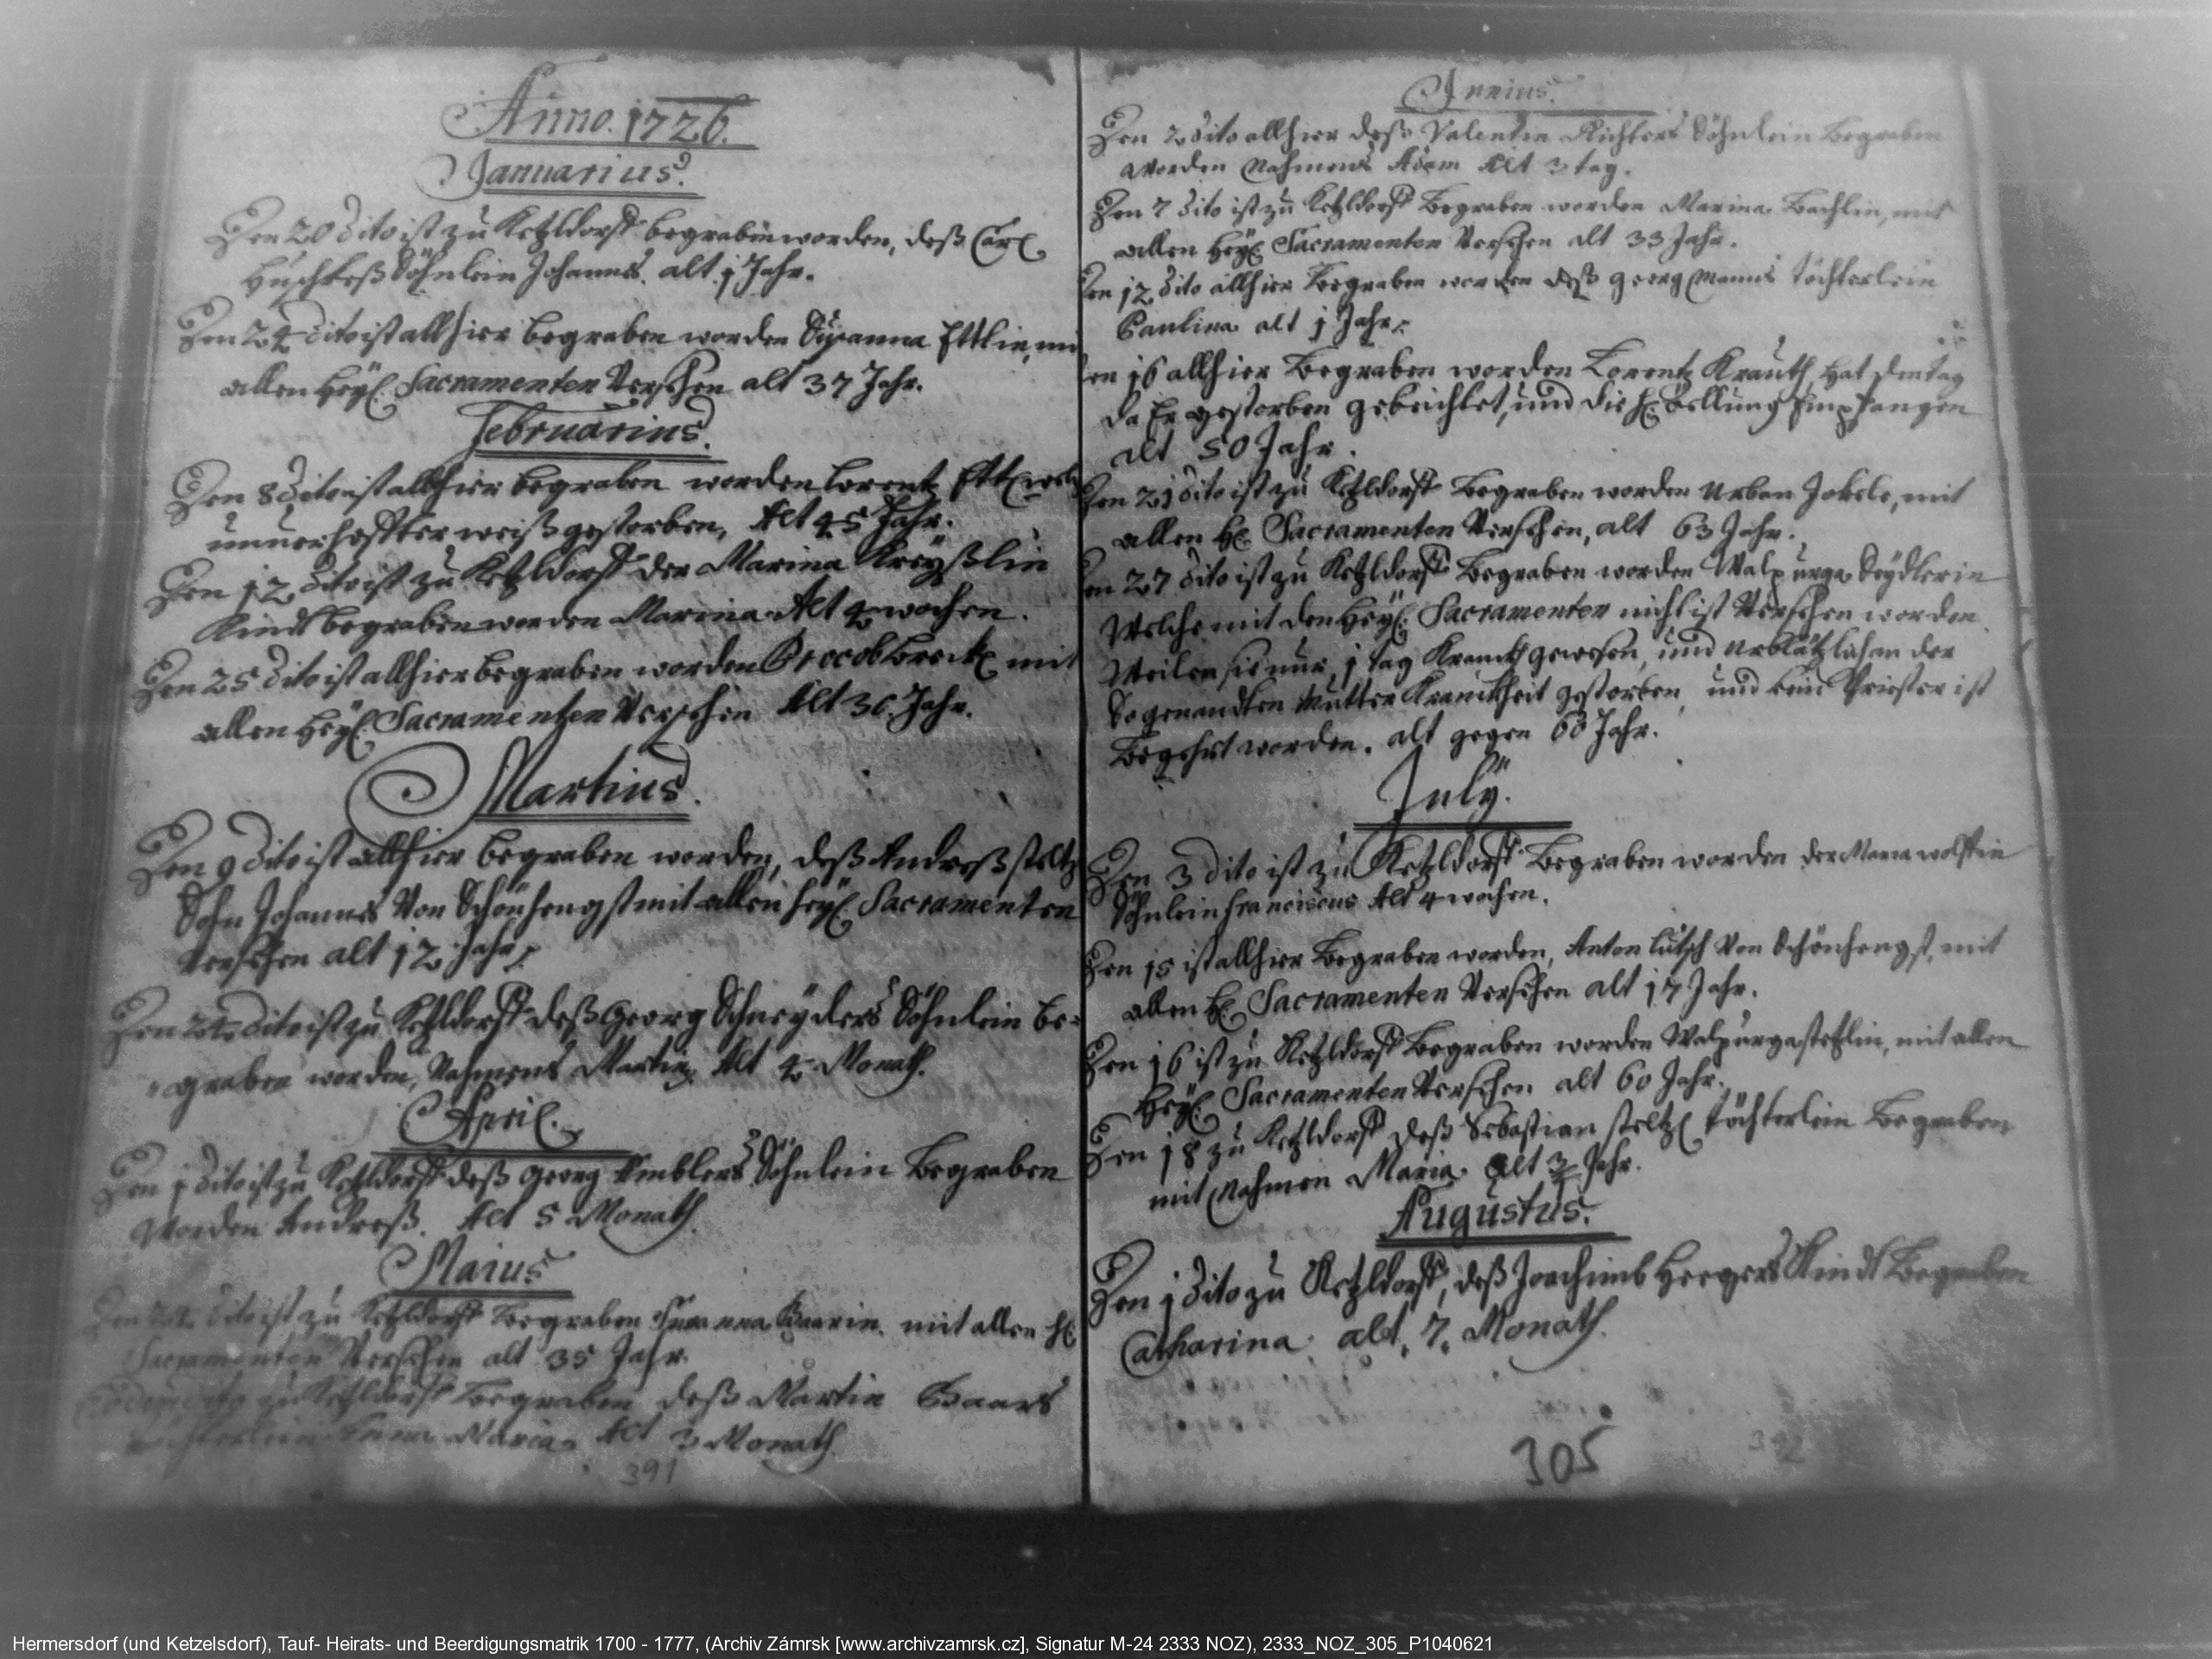 Anno. 1726.
Januarius.
Den 20 dito ist zu Ketzldorff begraben worden, deß Carl
Huschkeß Söhnlein Johannes. alt. 1 Jahr.
Den 24 dito ist allhier begraben worden Susanna Ettlin, mit
allen Heyl. Sacramenten Versehen alt 37 Jahr.
Februarius.
Den 8 dito ist allhier begraben worden Lorentz Ettl
unverhoffter weiß gestorben, Alt 45 Jahr.
Den 12 dito ist zu Ketzldorff der Marina Kreyßlin
Kindt begraben worden Marina Alt 4 wochen.
Den 25 dito ist allhier begraben worden mit
allen Heyl. Sacramenten Versehen Alt 36 Jahr.
Martius.
Den 9 dito ist allhier begraben worden, deß Andreß Steltz
Sohn Johannes Von Schönhengst mit allen heyl. Sacramenten
Versehen alt 12 Jahr.
Den 24 dito ist zu Ketzldorff deß Georg Schneyders Söhnlein be=
=graben worden, Nahmens Martin. Alt 4 Monath.
April.
Den 1 dito ist zu Ketzldorff deß Georg Söhnlein Begraben
Worden Andreß. Alt 5 Monath.
Maius
Den 24 dito ist zu Ketzldorff Begraben mit allen hl.
Sacramenten Versehen alt 35 Jahr.
zu Ketzldorff Begraben deß Martin Baars
Töchterlein Anna Maria Alt 3 Monath.
391
Junius.
Den 2 dito allhier deß Valentin Richters Söhnlein Begraben
Worden Nahmens Adam Alt 3 tag.
Den 7 dito ist zu Ketzldorff Begraben worden Marina Bachlin, mit
allen Heyl. Sacramenten Versehen alt 33 Jahr.
Den 12 dito allhier Begraben worden deß Georg Manns töchterlein
Paulina alt 1 Jahr.
Den 16 allhier Begraben worden Lorentz Krauth, Hat den tag
da Er gestorben gebeichtet, und die H. Oellung Empfangen
alt 50 Jahr.
Den 21 dito ist zu Ketzldorff Begraben worden Urban Jokele, mit
allen Hl. Sacramenten Versehen, alt 63 Jahr.
Den 27 dito ist zu Ketzldorff Begraben worden Walpurga Seydlerin
Welche mit den Heyl. Sacramenten nicht ist Versehen worden
Weilen sie nur 1 tag Kranckh gewesen, und an der
So genandten Mutter Kranckheit gestorben, und kein Priester ist
Begehrt worden. alt gegen 60 Jahr.
July.
Den 3 dito ist zu Ketzldorff Begraben worden der Maria Wolffin
Söhnlein Franciscus Alt 4 wochen.
Den 15 ist allhier Begraben worden, Anton Lutsch Von Schönhengst, mit
allen Hl. Sacramenten Versehen alt 17 Jahr.
Den 16 ist zu Ketzldorff Begraben worden Walpurga mit allen
Heyl. Sacramenten Versehen alt 60 Jahr.
Den 18 zu Ketzldorff deß Sebastian Steltzl töchterlein Begraben
mit Nahmen Maria. Alt Jahr.
Augustus.
Den 1 dito zu Ketzldorff, deß Joachimb Heegers Kindt Begraben
Catharina. alt. 7. Monath.
305
392
Hermersdorf (und Ketzelsdorf), Tauf- Heirats- und Beerdigungsmatrik 1700 - 1777, (Archiv Zámrsk [www.archivzamrsk.cz], Signatur M-24 2333 NOZ), 2333_NOZ_305_P1040621